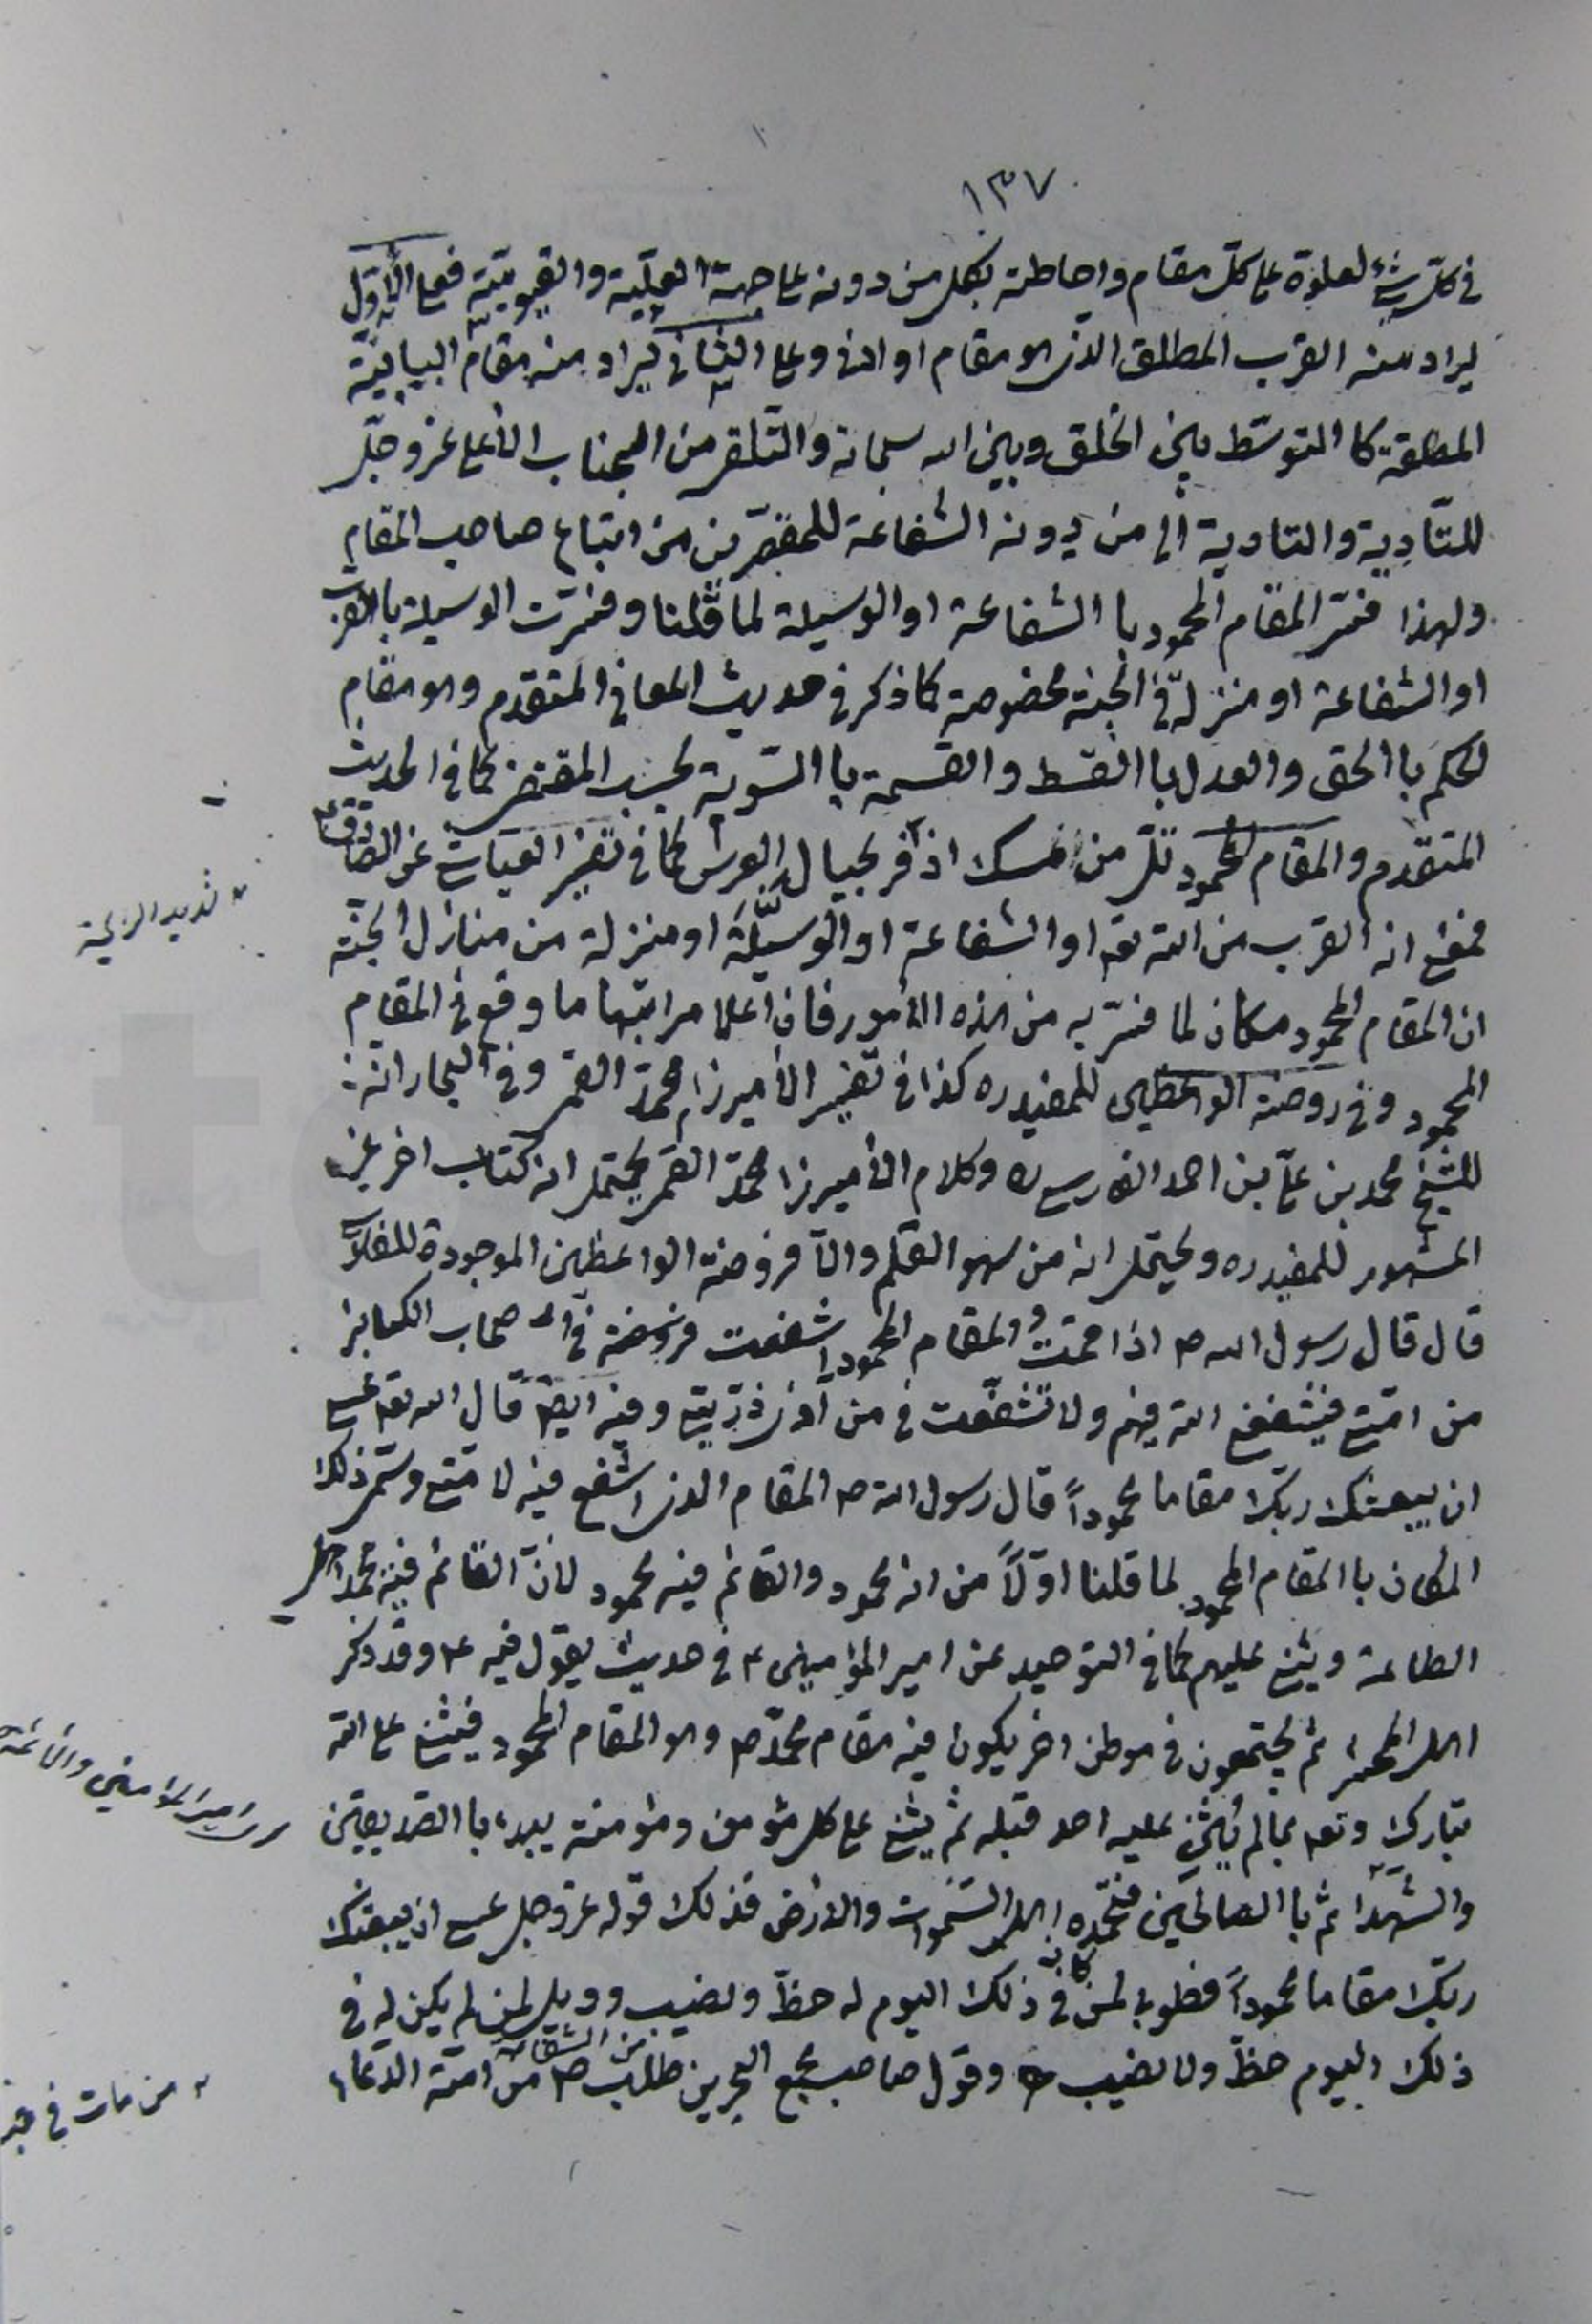 ١٣٧
في كل شئ لعلوه على كل مقام واحاطته بكل من دونه على جهة العلية والقيومية فعلى الأول
يراد منه القرب المطلق الذى هو مقام او ادنى وعلى الثانى يراد منه مقام البابية
المطلقة كا التوسّط بين الخلق وبين الله سبحانه والتلقى من الجناب الأعلى عز وجل
للتأدية والتادية الى من دونه الشفاعة للمقصّرين من اتباع صاحب المقام
ولهذا فسّر المقام المحمود با الشفاعة او الوسيلة لما قلنا وفسّرت الوسيلة با القرب
او الشفاعة او منزلة في الجنة مخصوصة كما ذكر في حديث المعانى المتقدم وهو مقام
الحكم با الحق والعدل با القسط والقسمة با السّوية بحسب المقتضى كما في الحديث
المتقدم والمقام المحمود تلّ من مسك اذفر بحيال العرش كما في تفسير العياشى عن الصادق ع
فمعنى انه القرب من الله تعه او الشفاعة او الوسيلة او منزلة من منازل الجنّة
ان المقام المحمود مكان لما فسّر به من هذه الأمور فان اعلا مراتبها ما وقع في المقام
المحمود وفي روضة الواعظين للمفيد ره كذا في تفسير الأميرزا محمّد القمى وفي البحار انه
للشيخ محمد بن علىّ بن احمد الفارسى ره وكلام الأميرزا محمّد القمى يحتمل انه كتاب اخر غير
المشهور للمفيد ره ويحتمل انه من سهو القلم والّا فروضة الواعظين الموجودة للفارسى
قال قال رسول الله ص اذا قمت المقام المحمود شفعت في اصحاب الكبائر
من امّتى فيشفعنى الله فيهم ولا تشفّعت في من آذى ذرّيتى وفيه ايضا قال الله تعه عسى
ان يبعثك ربّك مقاما محموداً قال رسول الله ص المقام الذى اشفع فيه لامّتى وسمّى ذلك
المكان با المقام المحمود لما قلنا اوّلاً من انه محمود والقائم فيه محمود لأنّ القائم فيه يحمد اهل
الطاعة ويثنى عليهم كما في التوحيد عن امير المؤمنين ع في حديث يقول فيه ع وقد ذكر
اهل المحشر ثم يجتمعون في موطن اخر يكون فيه مقام محمّد ص وهو المقام المحمود فيثنى على الله
تبارك وتعه بما لم يثن عليه احد قبله ثم يثنى على كل مؤمن ومؤمنة يبدء با الصديقين
والشهدا ثم با الصالحين فتحمده اهل السّموات والارض فذلك قوله عز وجل عسى ان يبعثك
ربّك مقاما محموداً فطوبى لمن كان في ذلك اليوم له حظّ ونصيب وويل لمن لم يكن له في
ذلك اليوم حظّ ولا نصيب وقول صاحب مجمع البحرين طلب ص من امته الدعاء
لذيذ الرايحة
امير المؤمنين والأئمة
من مات في
من الشفاعة